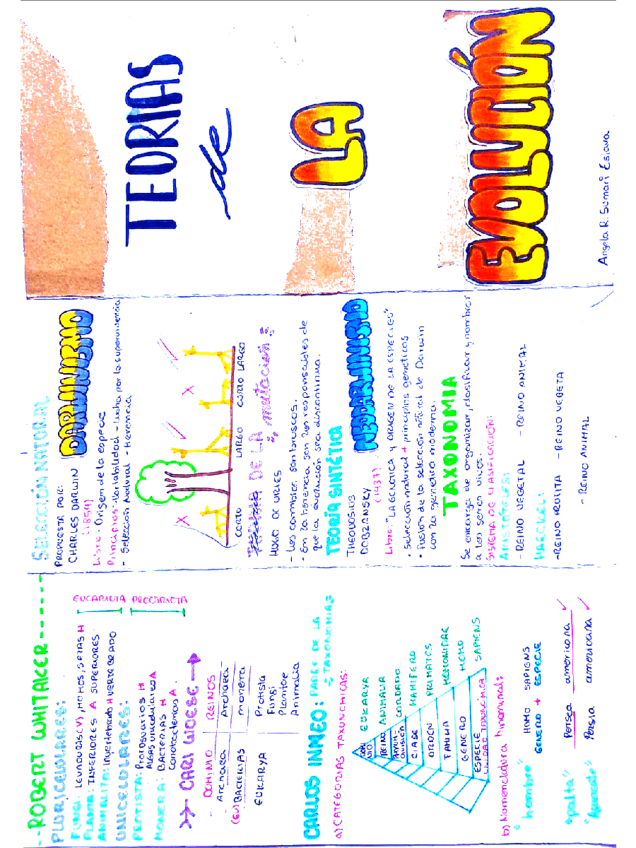 TEORIAS
de
LA
EVOLUCIÓN
Angela R. Samari
SELECCIÓN NATURAL
PROPUESTA POR:
CHARLES DARWIN
DARWINISMO
Libro: Origen de la especie
Principios: Variabilidad - Lucha por la supervivencia
- Selección Natural - Herencia
CORTO
LARGO
CORTO
LARGO
DE LA mutación
HUGO DE VRIES
- Los cambios son bruscos.
- En la herencia son los responsables de
que la evolución sea discontinua.
TEORÍA SINTÉTICA
NEODARWINISMO
THEODOSIUS
DOBZANSKY (1937)
Libro: "LA GENETICA Y ORIGEN DE LA ESPECIES"
• Selección natural + principios genéticos
• Fusión de la selección natural de Darwin
con la genética moderna.
TAXONOMIA
Se encarga de organizar, clasificar y nombrar
a los seres vivos.
SISTEMA DE CLASIFICACIÓN:
ARISTOTELES:
- REINO VEGETAL - REINO ANIMAL
HAECKEL:
- REINO PROTISTA - REINO VEGETA
- REINO ANIMAL
--ROBERT WHITAKER------
PLURICELULARES:
EUCARIOTA PROCARIOTA
FUNGI: LEVADURAS(V), MOHOS, SETAS H
PLANTA: INFERIORES A SUPERIORES
ANIMALITA: Invertebrado H VERTEBRADO
UNICELULARES:
PROTISTA: Protozoarios H
Algas unicelulares A
MONERA: BACTERIAS H
cianobacterias A.
>> CARI WOESE →
DOMINIO REINOS
Archaea Archaea
(EU)BACTERIAS monera
EUKARYA Protista
Fungi
Plantae
Animalia
CARLOS INNEO: PADRE DE LA
TAXONOMIA
a) CATEGORIAS TAXONOMICAS:
DOMINIO EUKARYA
REINO ANIMALIA
división CORDADO
CLASE MAMIFERO
ORDEN PRIMATES
FAMILIA HOMONIDAE
GENERO HOMO
ESPECIE SAPIENS
UNIDAD TAXONOMICA
b) Nomencladura binominal:
"hombre" HOMO SAPIENS
GENERO + ESPECIE
"palta" Persea americana
Persia americana